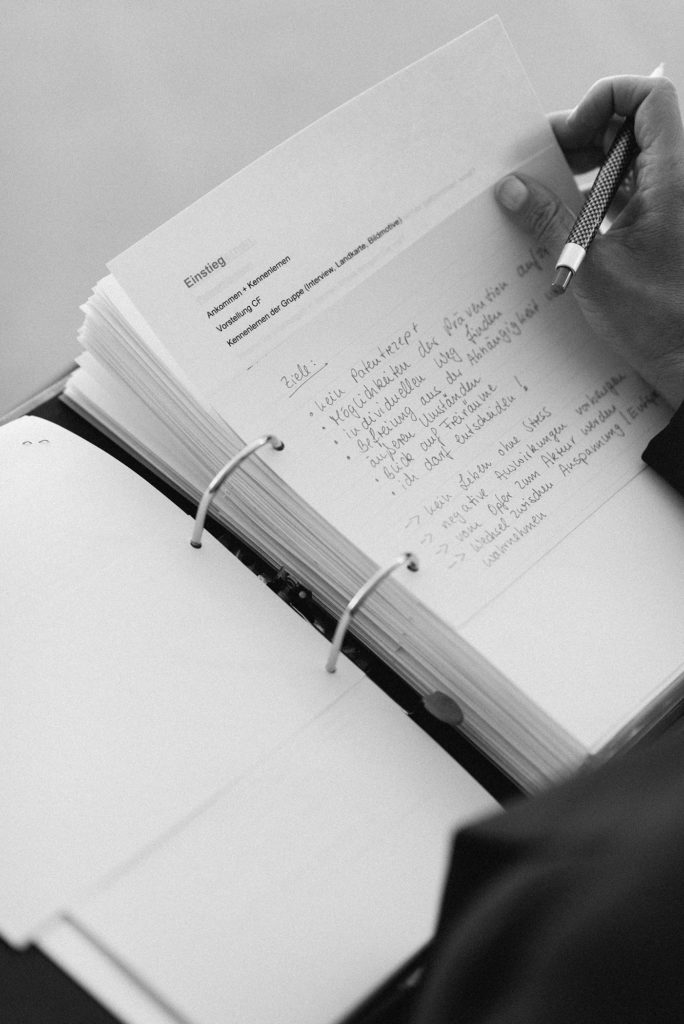 Einstieg
Ankommen + Kennenlernen
Vorstellung CF
Kennenlernen der Gruppe (Interview, Landkarte, Bildmotive)
Ziele:
• kein Patentrezept
• Möglichkeiten der Prävention
• individuellen Weg finden
• Befreiung aus der Abhängigkeit
äußeren Umständen
• Blick auf Freiräume
• ich darf entscheiden!
-> kein Leben ohne Stress
-> negative Auswirkungen vorbeugen
-> vom Opfer zum Akteur werden
-> Wechsel zwischen Anspannung /
wahrnehmen